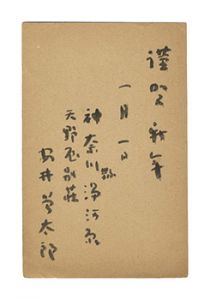 謹賀新年
一月一日
神奈川縣湯河原
天野屋別荘
安井曽太郎